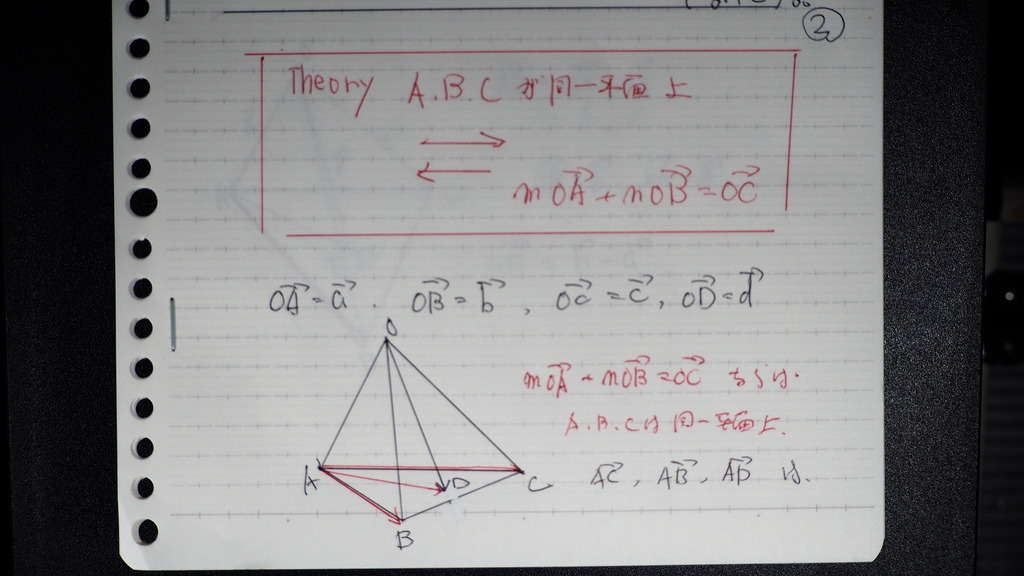 ②
Theory A.B.C が同一平面上
mOA + nOB = OC
OA = a . OB = b , OC = c , OD = d
O
mOA + nOB = OC ならば.
A.B.Cは同一平面上.
A D C AC , AB , AD は.
B